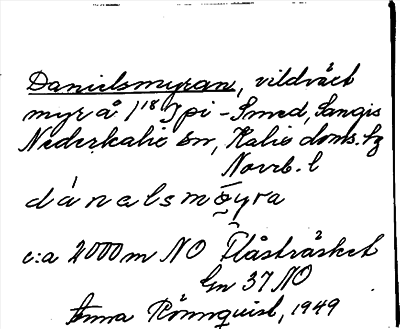 Danielsmyran, vildväxt
myr å 1¹⁸ Jpi - Smed, Sangis
Nederkalix sn, Kalix doms. lg
Norrb. l
dánalsmøyra
c:a 2000 m NO Flåsträsket
Gn 37 NO
Anna Rönnquist, 1949